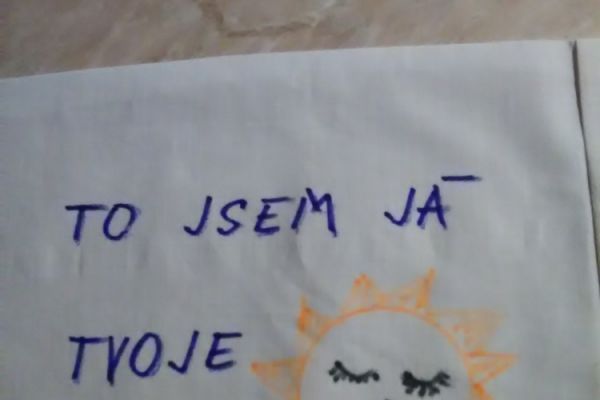 TO JSEM JÁ
TVOJE